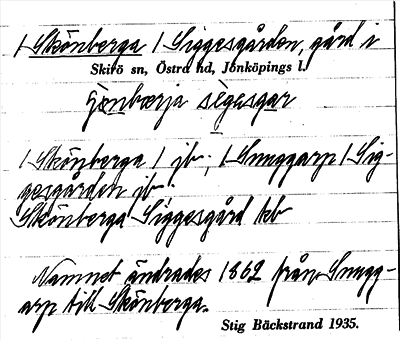 / Skönberga / Siggesgården, gård i
Skirö sn, Östra hd, Jönköpings l.
sègesgar
/ Skönberga / jb, / Snuggarp / Sig-
gesgården jb
Skönberga Siggesgård kb
Namnet ändrades 1862 från Snugg-
arp till Skönberga.
Stig Bäckstrand 1935.